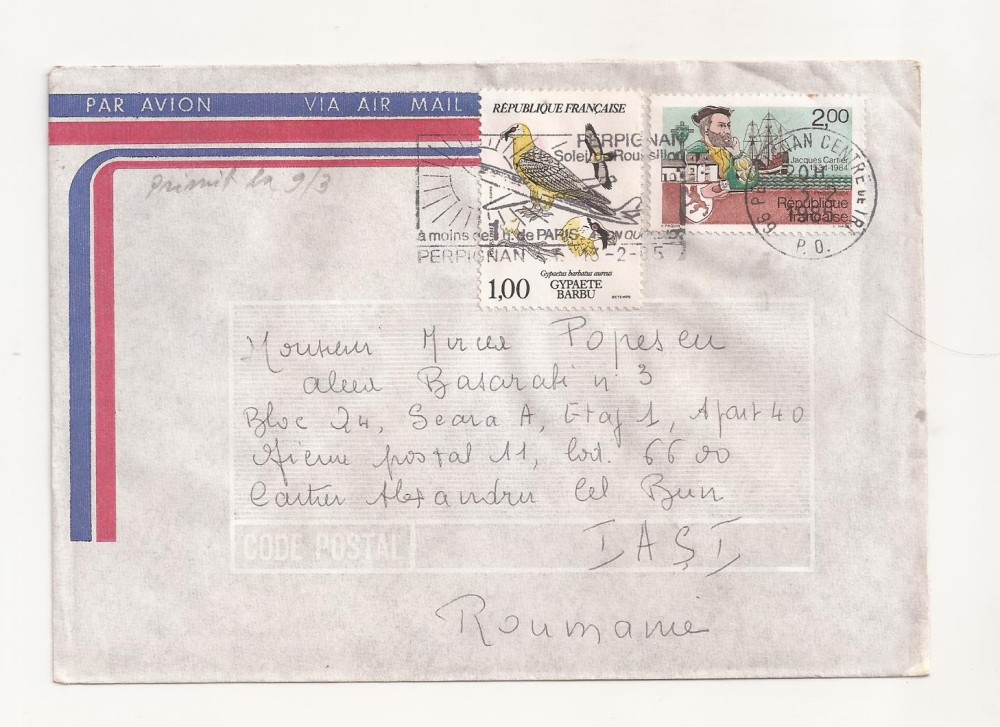 PAR AVION VIA AIR MAIL
primit la 9/3
RÉPUBLIQUE FRANÇAISE
1,00
Gypaetus barbatus aureus
GYPAETE
BARBU
PERPIGNAN
Le Soleil du Roussillon
à moins de h. de PARIS
PERPIGNAN -2-85
2,00
Jacques Cartier
1534-1984
République
française
66 PERPIGNAN CENTRE
20H
P.O.
Monsieur Mircea Popescu
aleea Basarabi n° 3
Bloc 24, Scara A, Etaj 1, Apart 40
Oficiu postal 11, Cod. 6600
Cartier Alexandru Cel Bun
CODE POSTAL
IAŞI
Roumanie